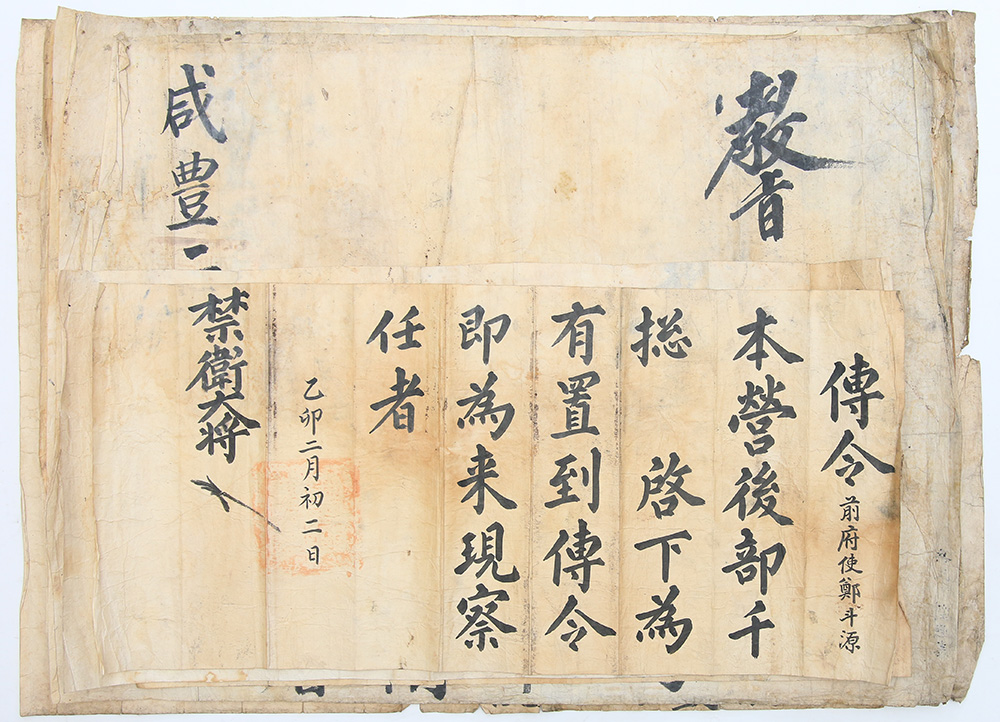 傳令 前府使鄭斗源
本營後部千
摠 啓下為
有置到傳令
即為来現察
任者
乙卯二月初二日
禁衛大将
教旨
咸豊